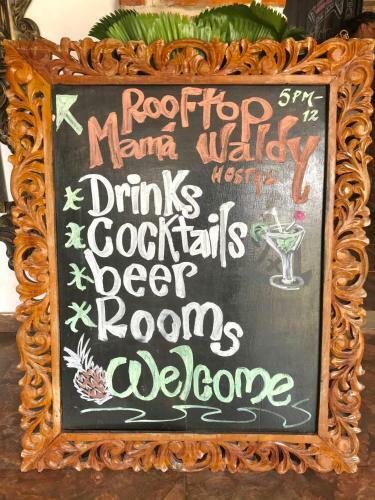 Rooftop
5PM-
12
Mamá Waldy
Drinks
Cocktails
beer
Rooms
Welcome